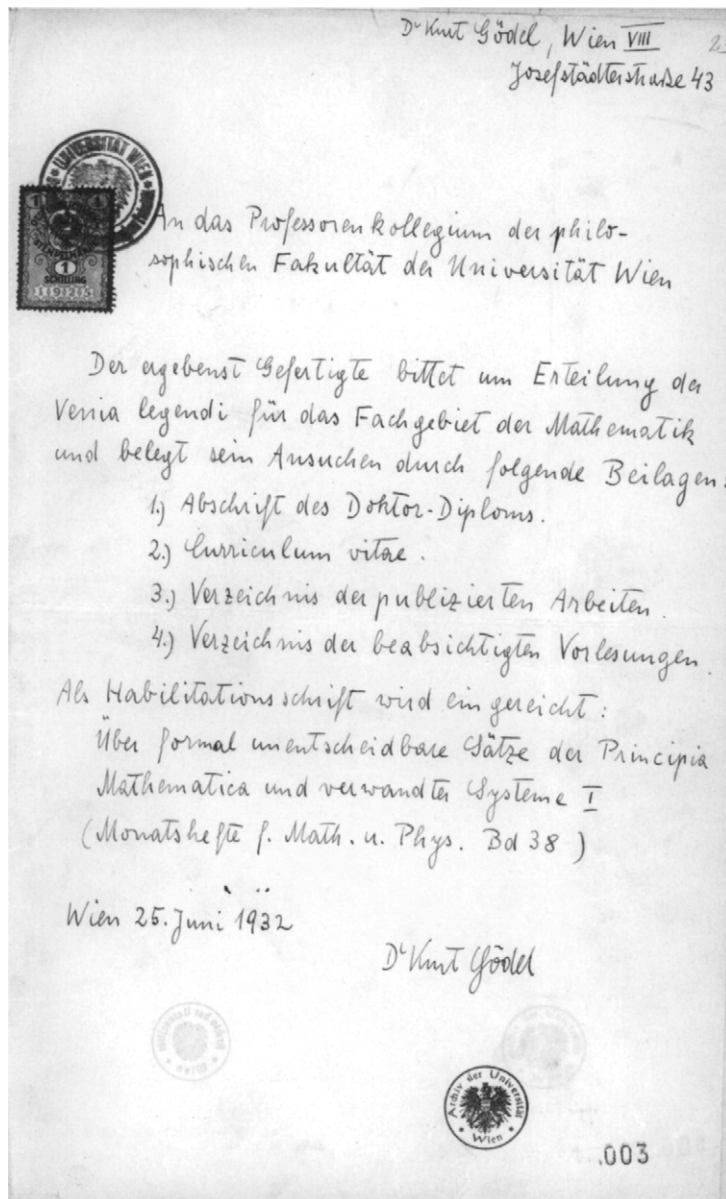 Dr Kurt Gödel, Wien VIII
Josefstädterstraße 43
UNIVERSITÄT WIEN
1
SCHILLING
1925
An das Professorenkollegium der philo-
sophischen Fakultät der Universität Wien
Der ergebenst Gefertigte bittet um Erteilung der
Venia legendi für das Fachgebiet der Mathematik
und belegt sein Ansuchen durch folgende Beilagen:
1.) Abschrift des Doktor-Diploms.
2.) Curriculum vitae.
3.) Verzeichnis der publizierten Arbeiten.
4.) Verzeichnis der beabsichtigten Vorlesungen.
Als Habilitationsschrift wird eingereicht:
Über formal unentscheidbare Sätze der Principia
Mathematica und verwandter Systeme I
(Monatshefte f. Math. u. Phys. Bd 38)
Wien 25. Juni 1932
Dr Kurt Gödel
Archiv der Universität
Wien
003